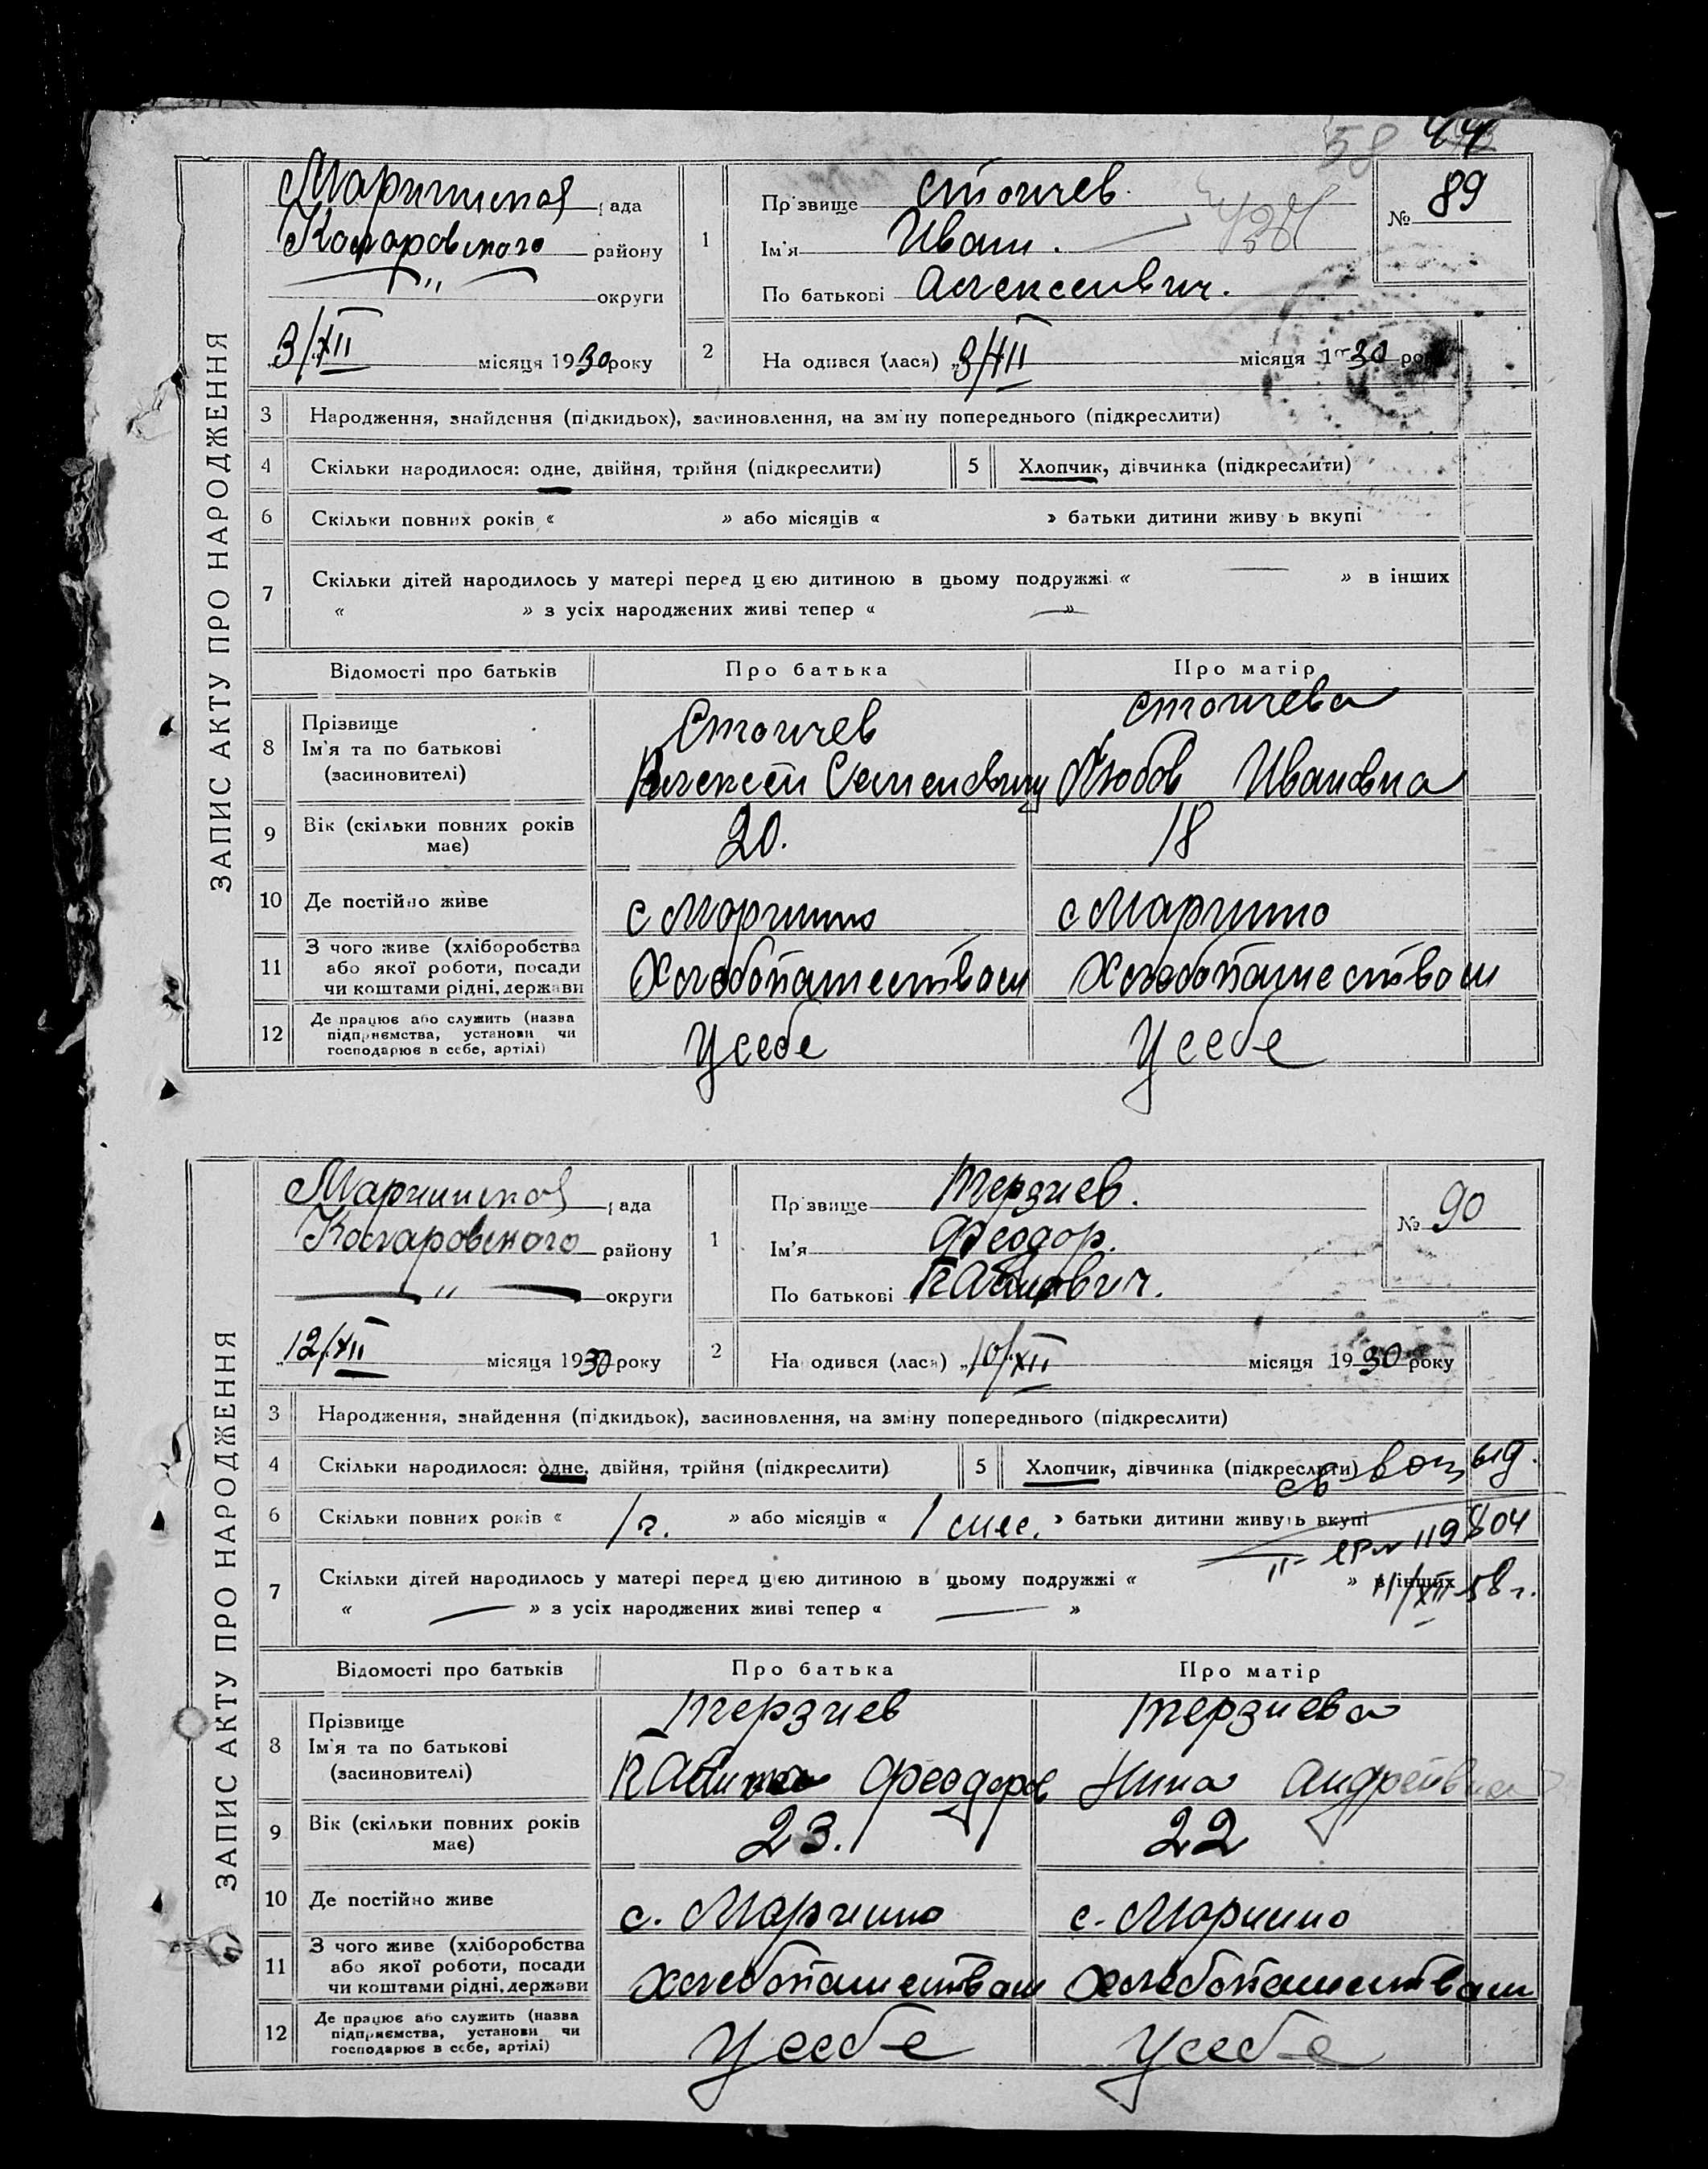 58 44
ЗАПИС АКТУ ПРО НАРОДЖЕННЯ
Маринской рада
Коларовского району
— " — округи
3/XII місяця 1930 року
1
Прізвище Стоичев.
Ім'я Иван.
По батькові Алексеевич.
№ 89
2 Народився (лася) „3/XII місяця 1930 року
3 Народження, знайдення (підкидьок), засиновлення, на зміну попереднього (підкреслити)
4 Скільки народилося: одне, двійня, трійня (підкреслити) 5 Хлопчик, дівчинка (підкреслити)
6 Скільки повних років « » або місяців « » батьки дитини живуть вкупі
7 Скільки дітей народилось у матері перед цією дитиною в цьому подружжі « — » в інших
« » з усіх народжених живі тепер « — »
Відомості про батьків Про батька Про матір
8 Прізвище Стоичев Стоичева
Ім'я та по батькові Алексей Семенович Любов Ивановна
(засиновителі)
9 Вік (скільки повних років має) 20. 18
10 Де постійно живе с Марино с Марино
11 З чого живе (хліборобства або якої роботи, посади чи коштами рідні, держави Хлебопашеством Хлебопашеством
12 Де працює або служить (назва підприємства, установи чи господарює в себе, артілі) У себе У себе
ЗАПИС АКТУ ПРО НАРОДЖЕННЯ
Маринской рада
Коларовского району
— " — округи
„12/XII місяця 1930 року
1
Прізвище Терзиев.
Ім'я Феодор.
По батькові
№ 90
2 Народився (лася) „10/XII місяця 1930 року
3 Народження, знайдення (підкидьок), засиновлення, на зміну попереднього (підкреслити)
4 Скільки народилося: одне, двійня, трійня (підкреслити) 5 Хлопчик, дівчинка (підкреслити)
св выд.
6 Скільки повних років « 1 г. » або місяців « 1 мес. » батьки дитини живуть вкупі
119804
7 Скільки дітей народилось у матері перед цією дитиною в цьому подружжі « » в інших
11/XII-58 г.
« — » з усіх народжених живі тепер « — »
Відомості про батьків Про батька Про матір
8 Прізвище Терзиев Терзиева
Ім'я та по батькові Феодоров Нина Андреевна
(засиновителі)
9 Вік (скільки повних років має) 23. 22
10 Де постійно живе с. Марино с. Марино
11 З чого живе (хліборобства або якої роботи, посади чи коштами рідні, держави Хлебопашеством Хлебопашеством
12 Де працює або служить (назва підприємства, установи чи господарює в себе, артілі) У себе У себе